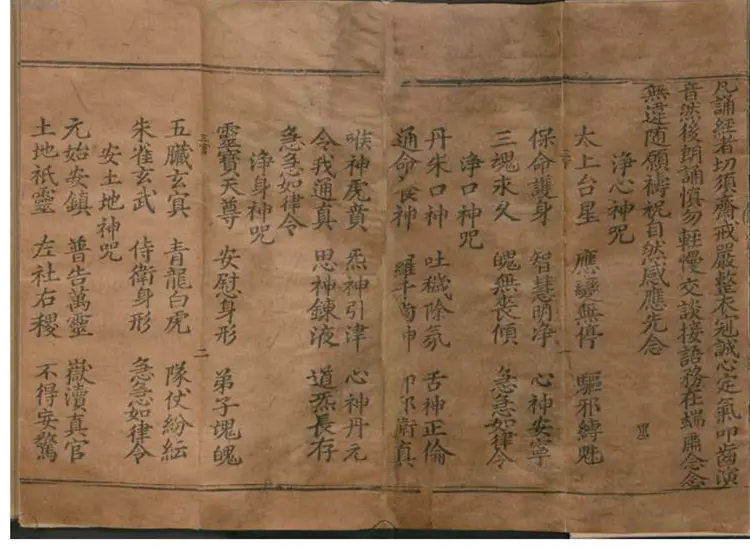 凡誦經者切須齋戒嚴整衣冠誠心定氣叩齒演
音然後朗誦慎勿輊慢交談接語務在端肅念念
無違随願禱祝自然感應先念
淨心神咒
太上台星 應變無停 驅邪縛魅
保命護身 智慧明净 心神安寧
三魂永久 魄無喪傾 急急如律令
淨口神咒
丹朱口神 吐穢除氛 舌神正倫
通命養神 羅千齒神 却邪衛真
喉神虎賁 炁神引津 心神丹元
令我通真 思神鍊液 道炁長存
急急如律令
淨身神咒
靈寶天尊 安慰身形 弟子魂魄
五臟玄冥 青龍白虎 隊仗紛紜
朱雀玄武 侍衛身形 急急如律令
安土地神咒
元始安鎮 普告萬靈 嶽瀆真官
土地祇靈 左社右稷 不得妄驚
二